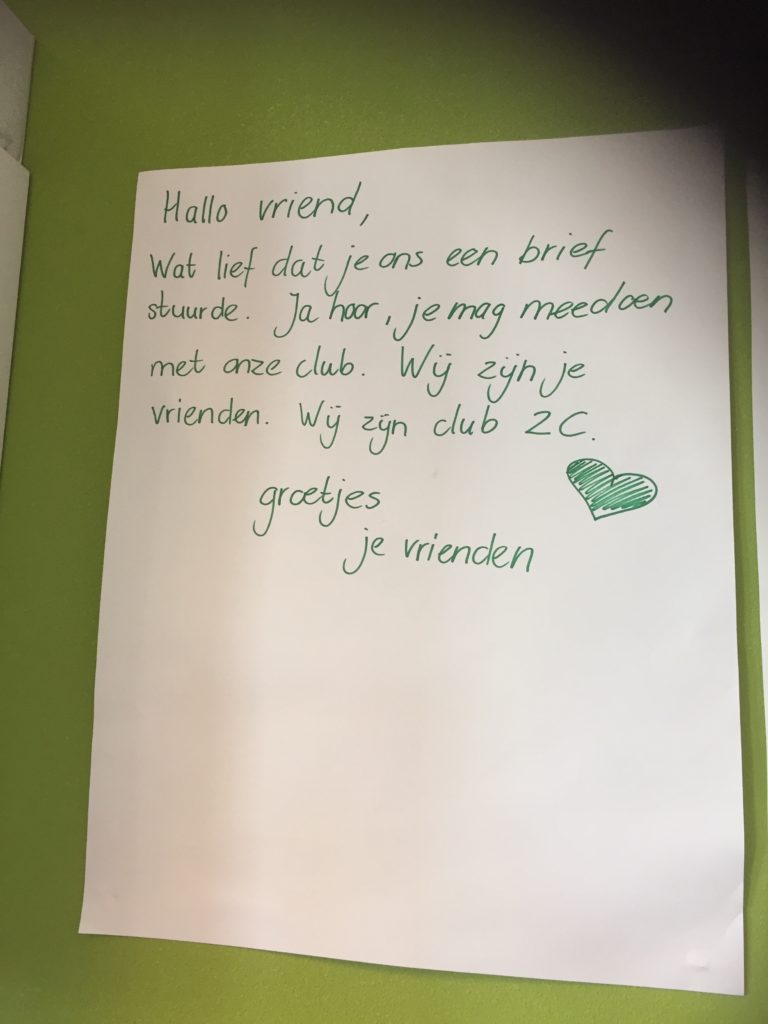 Hallo vriend,
Wat lief dat je ons een brief
stuurde. Ja hoor, je mag meedoen
met onze club. Wij zijn je
vrienden. Wij zijn club 2C.
groetjes
je vrienden